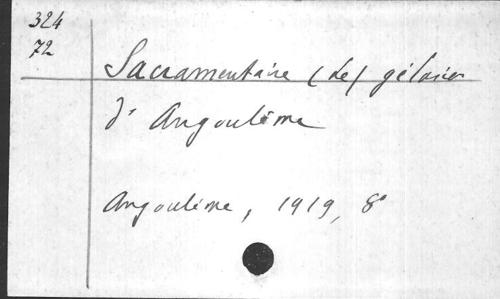 324
72
Sacramentaire (Le) gélasien
d'Angoulême
Angoulême, 1919, 8°